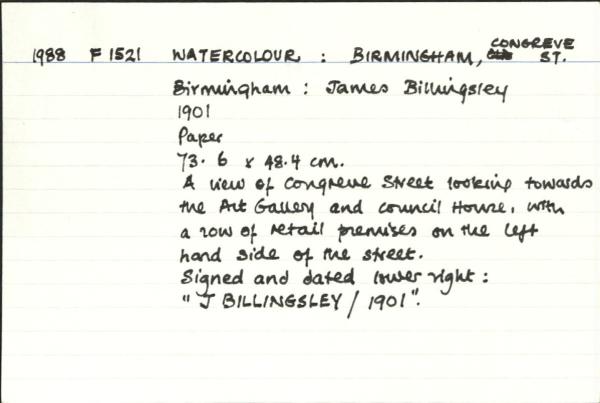 1988 F1521 WATERCOLOUR : BIRMINGHAM, CONGREVE ST.
Birmingham : James Billingsley
1901
Paper
73.6 x 48.4 cm.
A view of Congreve Street looking towards
the Art Gallery and Council House, with
a row of retail premises on the left
hand side of the street.
Signed and dated lower right :
"J BILLINGSLEY / 1901".